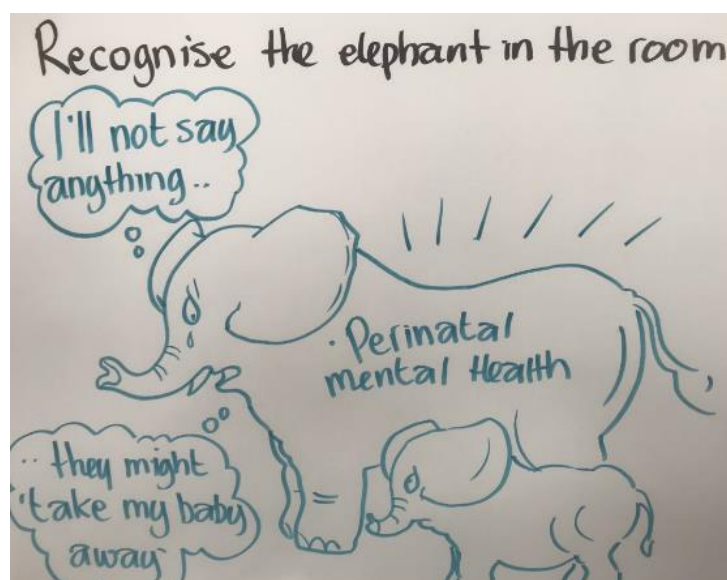 Recognise the elephant in the room
I'll not say
anything..
·Perinatal
mental Health
..they might
'take my baby
away